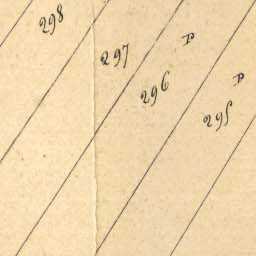 298
297
296
295